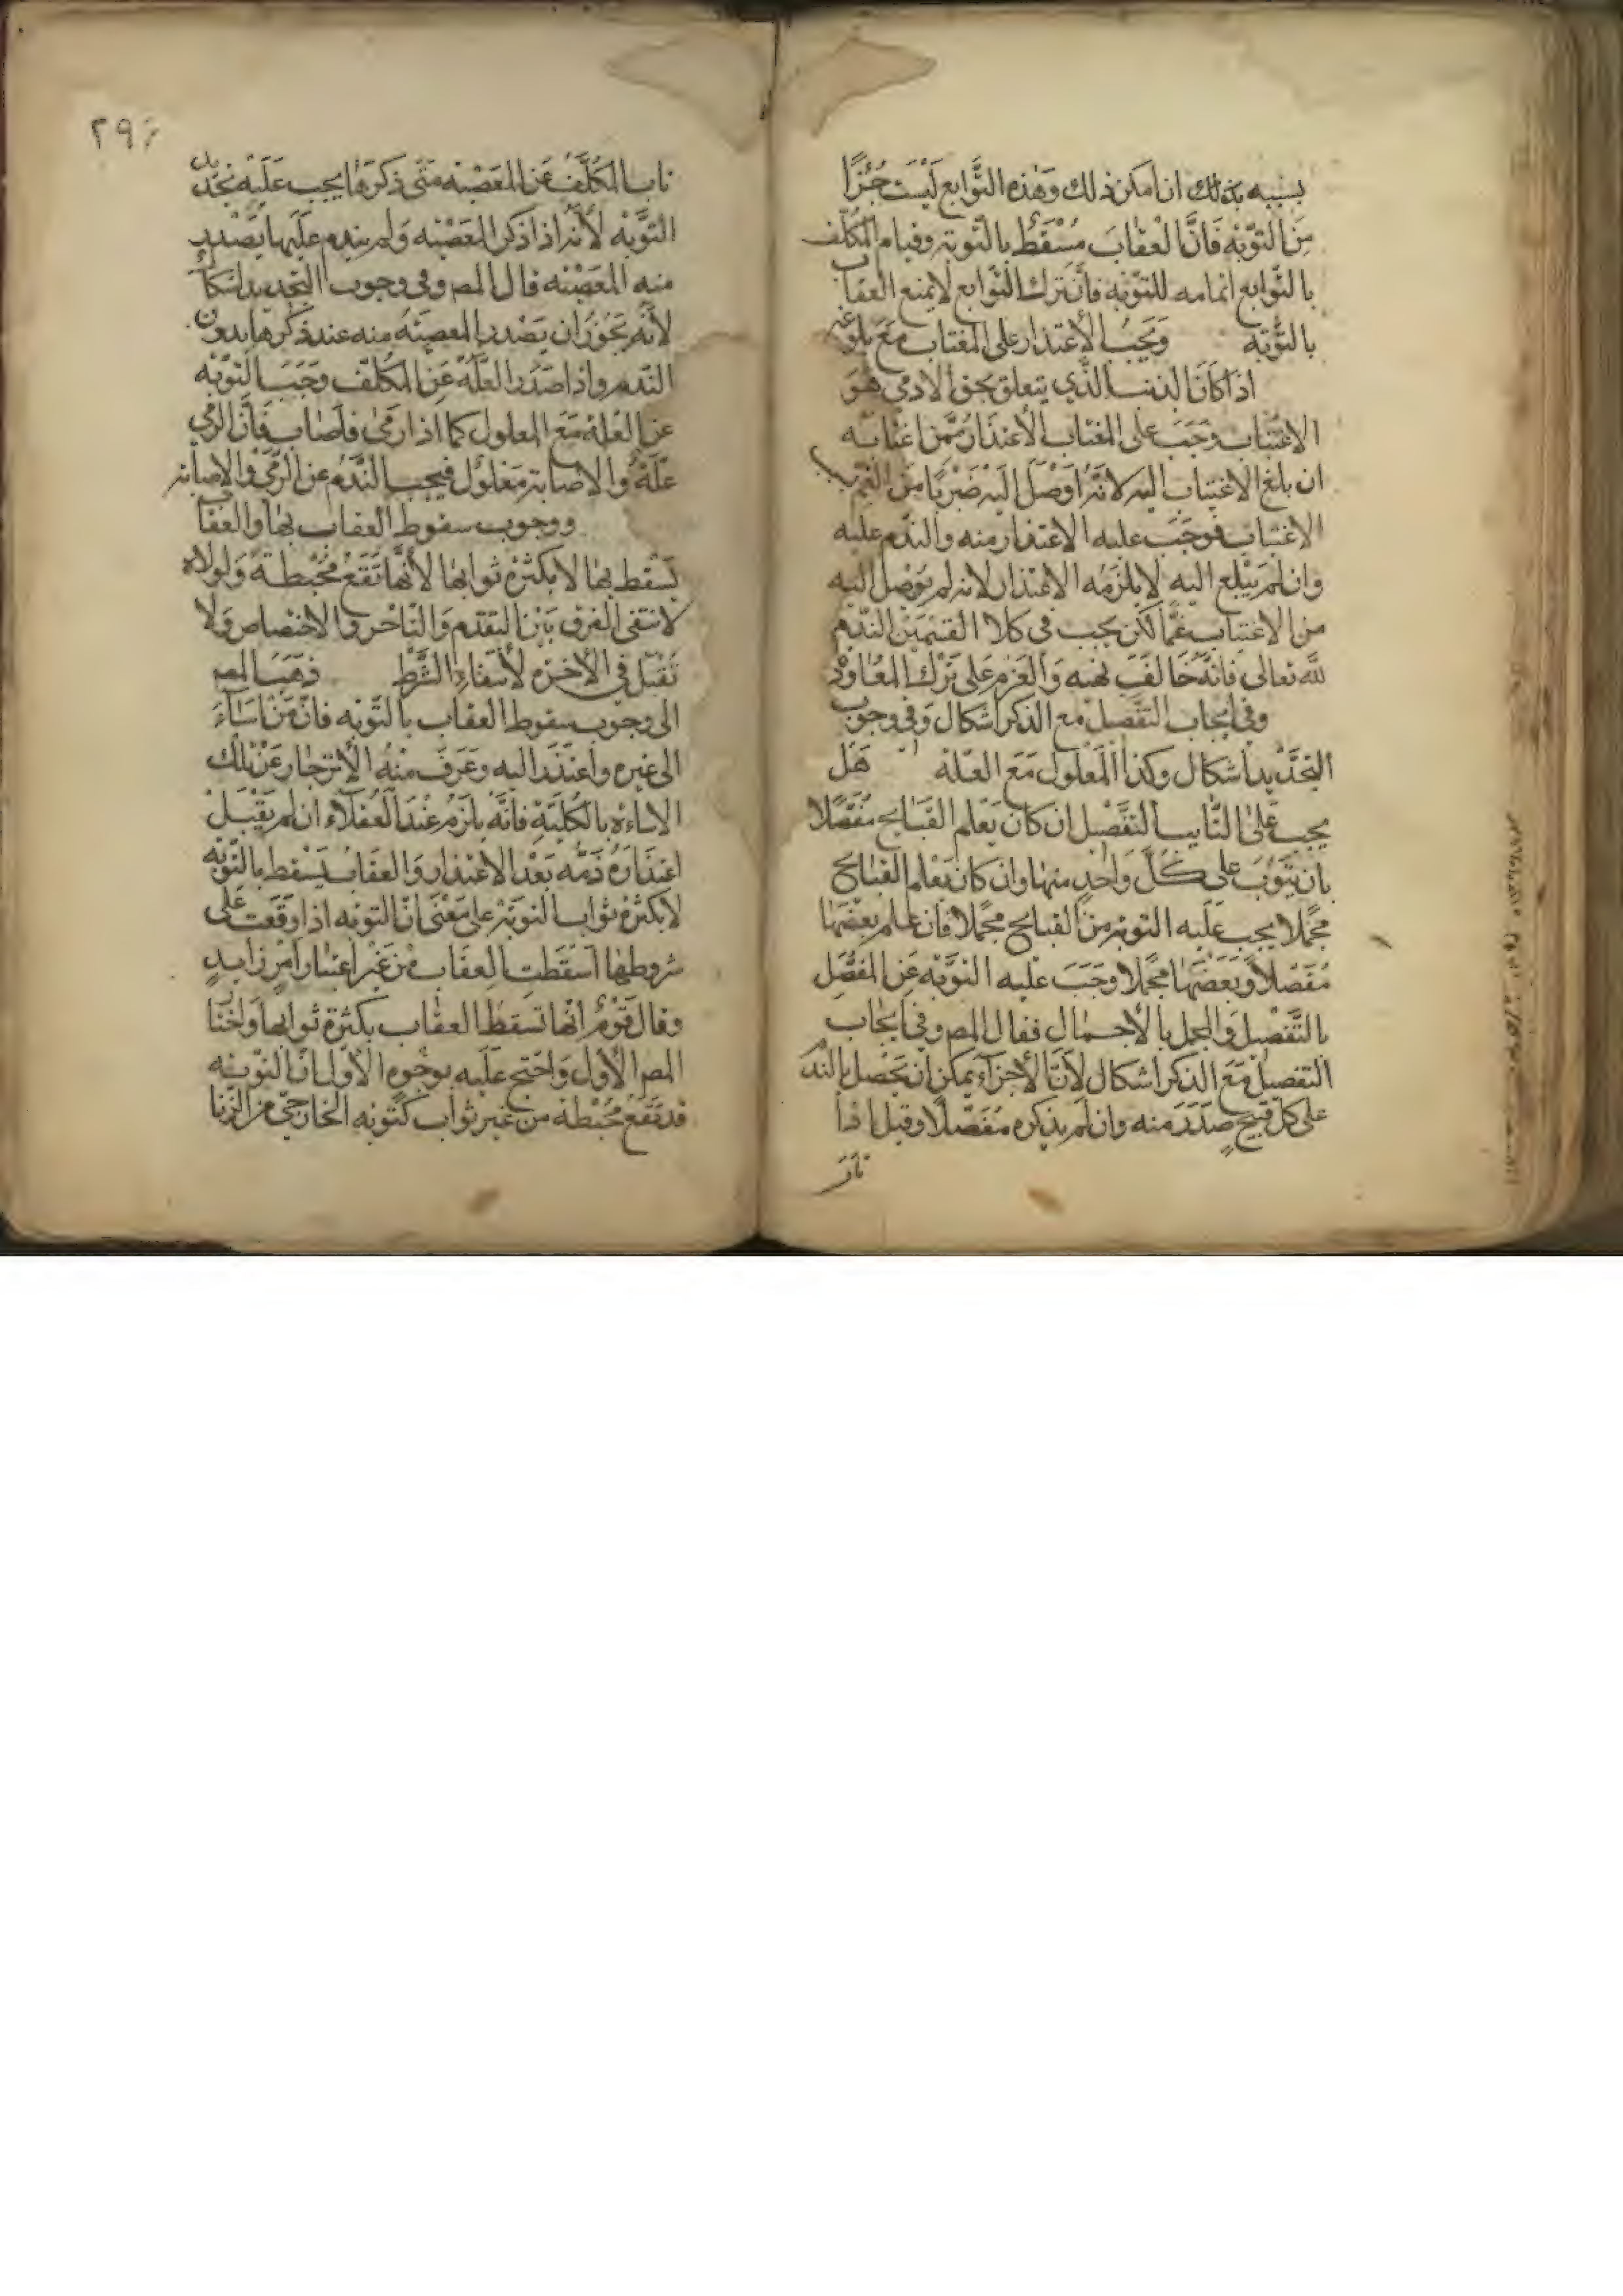 بسببه بذلك ان امكن ذلك وهذه التوابع ليست جزءًا
من التوبة فانّ العقاب مسقط بالتوبة وقيام المكلف
بالتوابع اتمامه للتوبة فانّ ترك التوابع لا يمنع العقاب
بالتوبة ويجب الاعتذار على المغتاب مع بلوغه
اذا كان الذنب الذي يتعلق بحق الادمي هو
الاغتياب وجب على المغتاب الاعتذار ممن اغتابه
ان بلغ الاغتياب اليه لانه اوصل اليه ضربًا من الغم
الاغتياب فوجب عليه الاعتذار منه والندم عليه
وان لم يبلغ اليه لا يلزمه الاعتذار لانه لم يوصل اليه
من الاغتياب غمّا لكن يجب في كلا القسمين الندم
لله تعالى فانه خالف نهيه والعزم على ترك المعاودة
وفي ايجاب التفصيل مع الذكر اشكال وفي وجوب
التجديد اشكال وكذا المعلول مع العلة هل
يجب على التايب التفصيل ان كان يعلم القبايح مفصلا
بان يتوب على كل واحد منها وان كان يعلم القبايح
مجملا يجب عليه التوبة من القبايح مجملا فان علم بعضها
مفصلا وبعضها مجملا وجب عليه التوبة عن المفصل
بالتفصيل والمجمل بالاجمال فقال المص وفي ايجاب
التفصيل مع الذكر اشكال لان الاجزاء يمكن ان يحصل بالندم
على كل قبيح صدر منه وان لم يذكره مفصلا وقيل اذا
تاب
٢٩٠
تاب المكلف عن المعصية متى ذكرها يجب عليه تجديد
التوبة لانه اذا ذكر المعصية ولم يندم عليها يصدر
منه المعصية قال المص وفي وجوب التجديد اشكال
لانه يجوز ان يصدر المعصية منه عند ذكرها بدون
الندم واذا صدر العلة عن المكلف وجب التوبة
عن العلة مع المعلول كما اذا رمى فاصاب فان الرمي
علة والاصابة معلول فيجب الندم عن الرمي والاصابة
ووجوب سقوط العقاب بها والعقاب
يسقط بها لا بكثرة ثوابها لانها تقع محبطة ولولاه
لانتفى الفرق بين التقدم والتاخر والاختصاص ولا
تقبل في الاخرة لانتفاء الشرط ذهب المص
الى وجوب سقوط العقاب بالتوبة فان من اساء
الى غيره واعتذر اليه وعرف منه الانزجار عن تلك
الاساءة بالكلية فانه يلزم عند العقلاء ان لم يقبل
اعتذاره ذمه بعد الاعتذار والعقاب يسقط بالتوبة
لا بكثرة ثواب التوبة على معنى ان التوبة اذا وقعت على
شروطها اسقطت العقاب من غير اعتبار امر زايد
وقال قوم انها تسقط العقاب بكثرة ثوابها واختار
المص الاول واحتج عليه بوجوه الاول ان التوبة
قد تقع محبطة من غير ثواب كتوبة الخارجي من الزنا